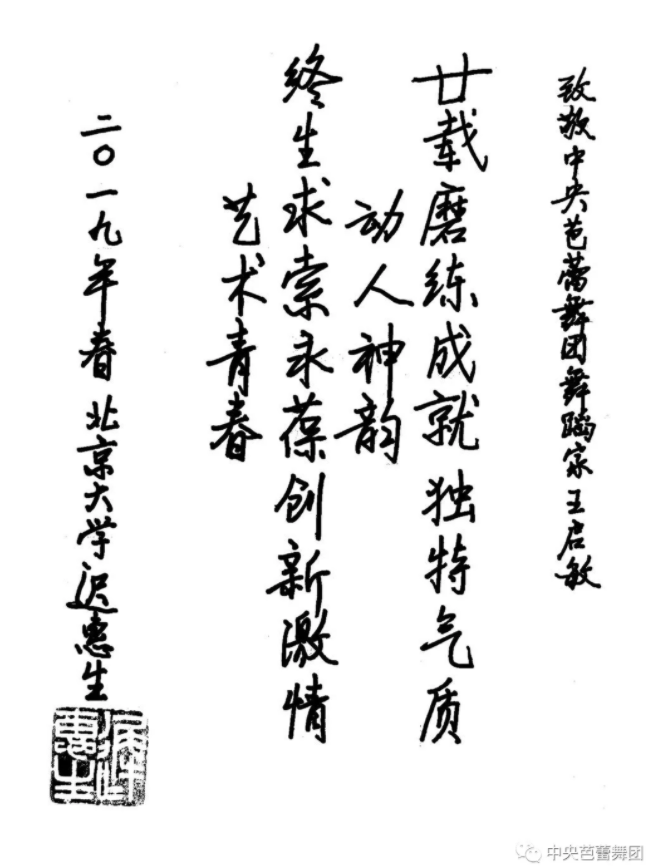 致敬中央芭蕾舞团舞蹈家王启敏
廿载磨练成就独特气质
动人神韵
终生求索永葆创新激情
艺术青春
二〇一九年春北京大学迟惠生
中央芭蕾舞团